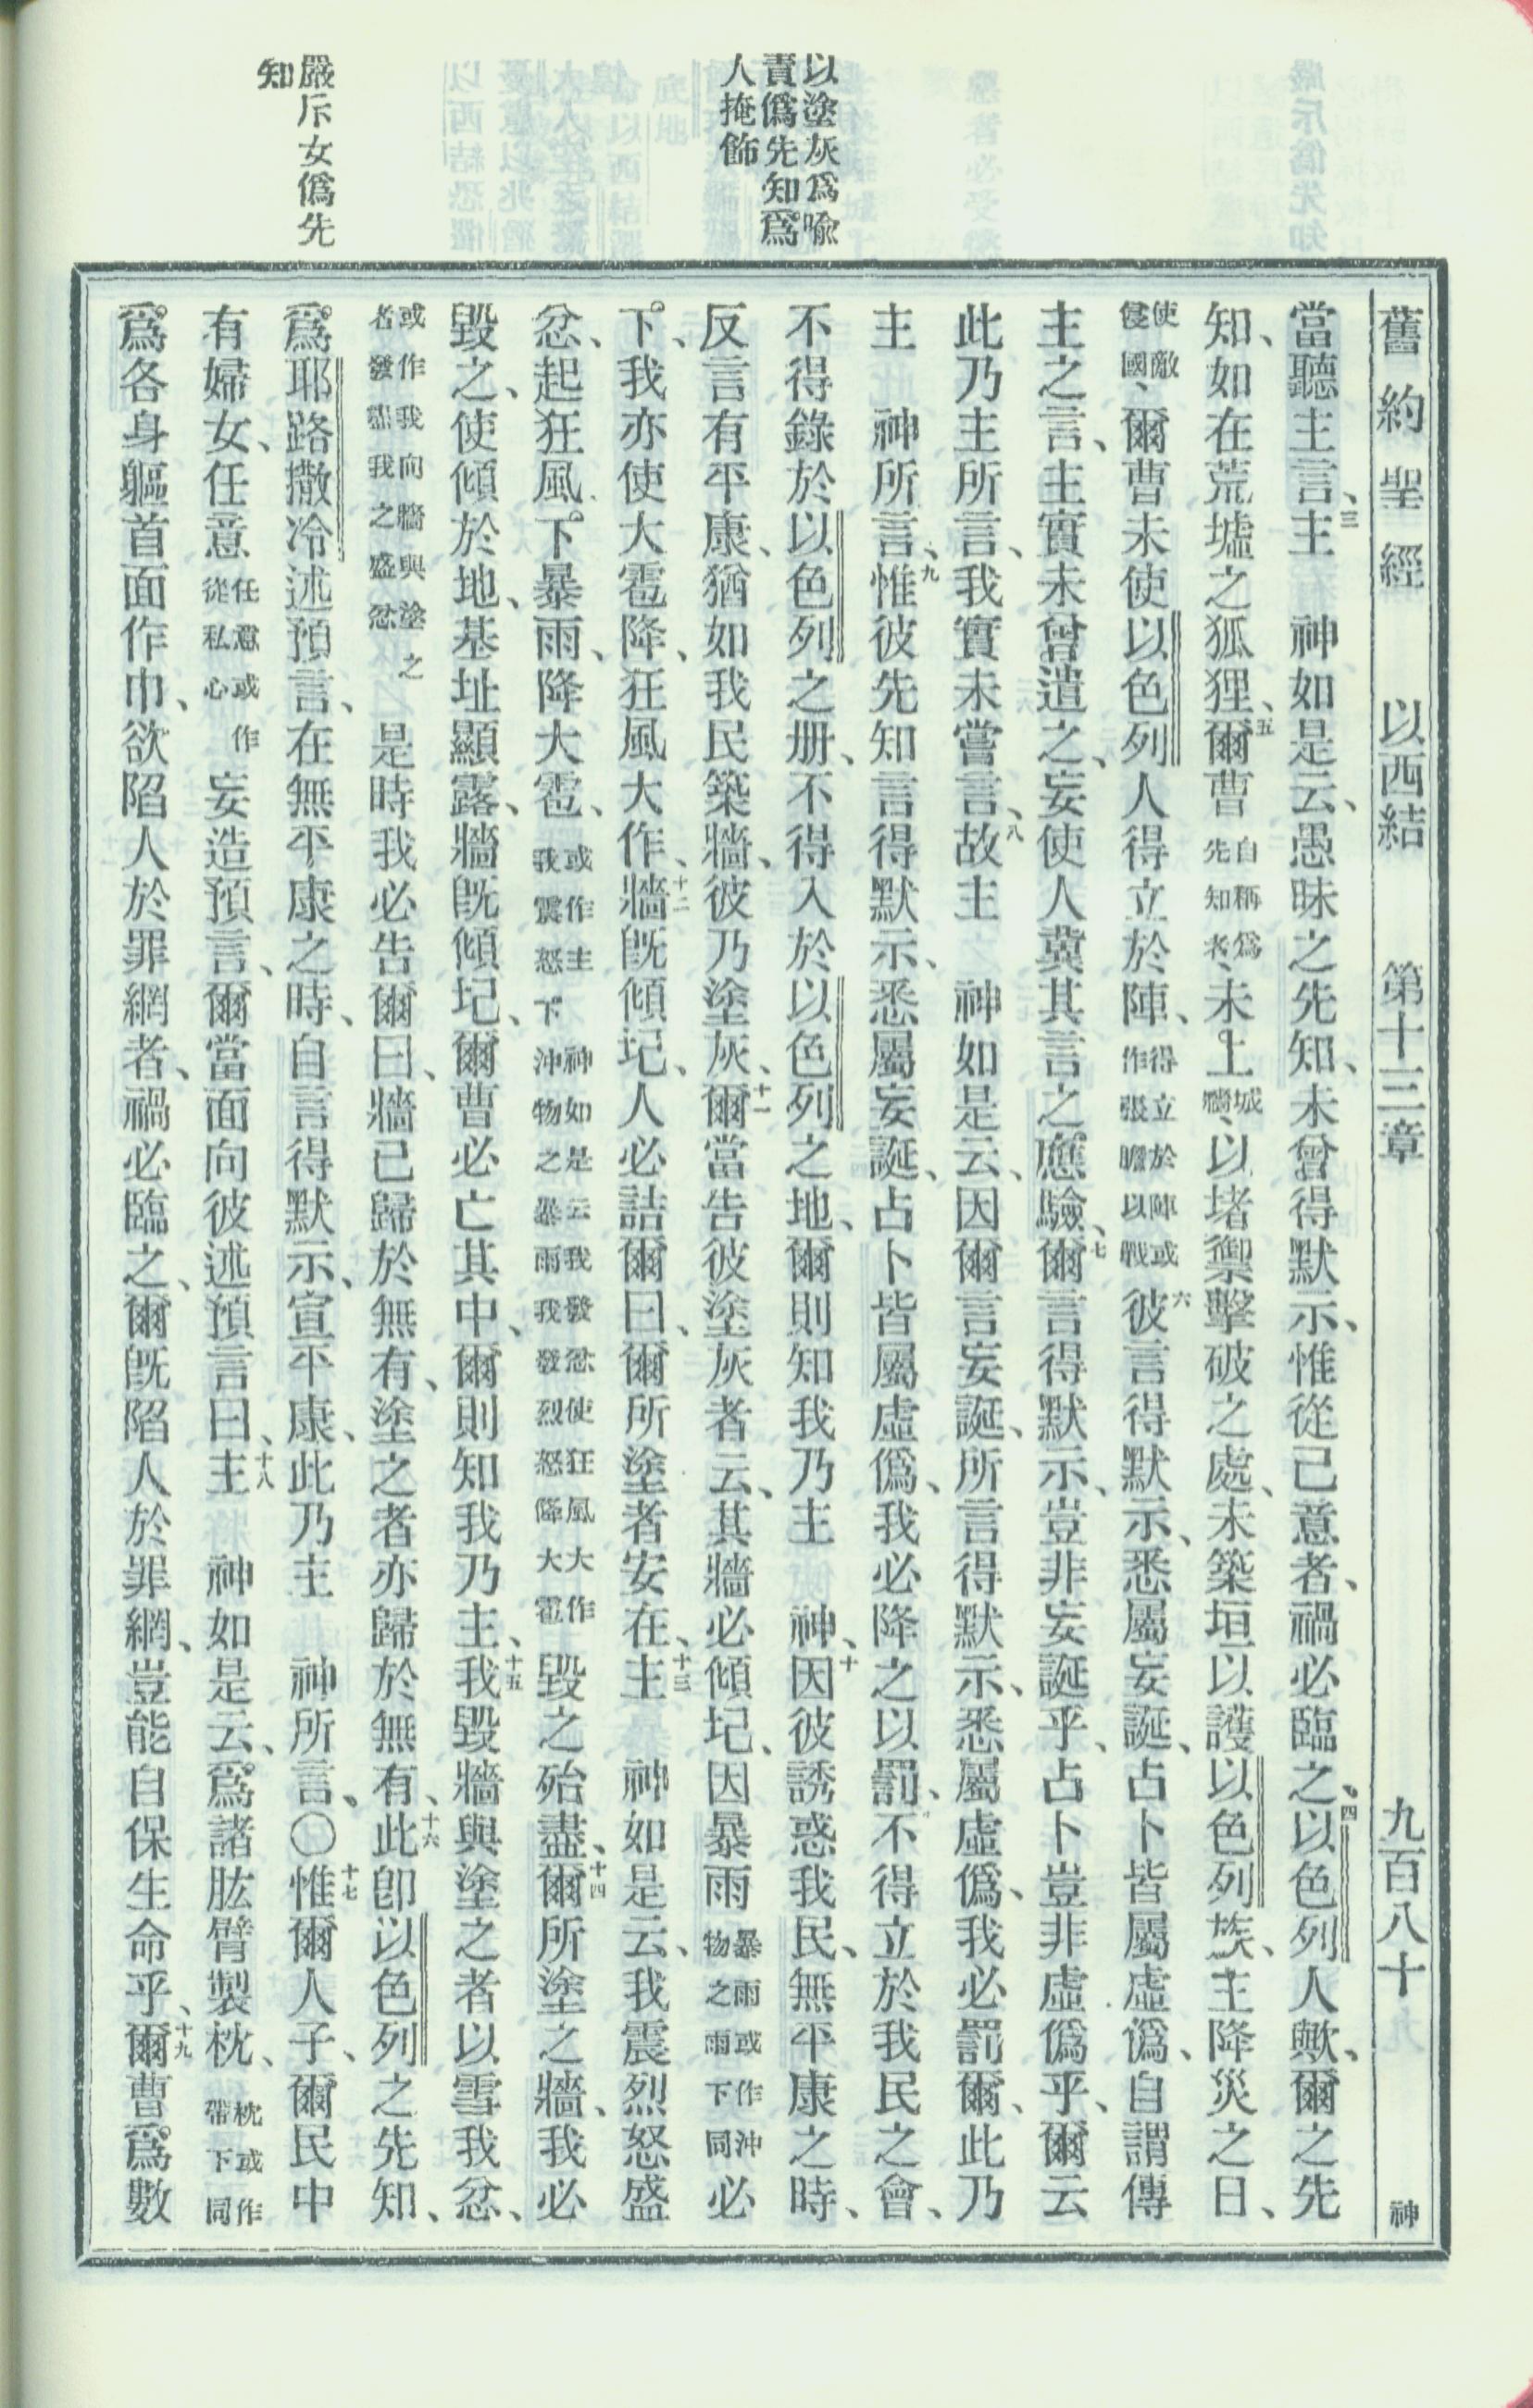 舊約聖經　以西結　第十三章　九百八十　神
以塗灰爲喩
責僞先知爲
人掩飾
嚴斥女僞先
知
當聽主言、三主　神如是云、愚昧之先知、未曾得默示、惟從己意者、禍必臨之、四以色列人歟、爾之先
知、如在荒墟之狐狸、五爾曹自稱爲先知者、未上城牆、以堵禦擊破之處、未築垣以護以色列族、主降災之日、
使敵侵國、爾曹未使以色列人得立於陣、得立於陣或作張膽以戰六彼言得默示、悉屬妄誕、占卜皆屬虛僞、自謂傳
主之言、主實未曾遣之、妄使人冀其言之應驗、七爾言得默示、豈非妄誕乎、占卜豈非虛僞乎、爾云
此乃主所言、我實未嘗言、八故主　神如是云、因爾言妄誕、所言得默示、悉屬虛僞、我必罰爾、此乃
主　神所言、九惟彼先知言得默示、悉屬妄誕、占卜皆屬虛僞、我必降之以罰、不得立於我民之會、
不得錄於以色列之册、不得入於以色列之地、爾則知我乃主　神、十因彼誘惑我民、無平康之時、
反言有平康、猶如我民築牆、彼乃塗灰、十一爾當告彼塗灰者云、其牆必傾圮、因暴雨暴雨或作沖物之雨下同必
下、我亦使大雹降、狂風大作、十二牆旣傾圮、人必詰爾曰、爾所塗者安在、十三主　神如是云、我震烈怒盛
忿、起狂風、下暴雨、降大雹、或作主神如是云我發忿使狂風大作我震怒下沖物之暴雨我發烈怒降大雹毀之殆盡、十四爾所塗之牆、我必
毀之、使傾於地、基址顯露、牆旣傾圮、爾曹必亡其中、爾則知我乃主、十五我毀牆與塗之者以雪我忿、
或作我向牆與塗之者發洩我之盛忿是時我必告爾曰、牆已歸於無有、塗之者亦歸於無有、十六此卽以色列之先知、
爲耶路撒冷述預言、在無平康之時、自言得默示、宣平康、此乃主　神所言、〇十七惟爾人子、爾民中
有婦女、任意任意或作從私心妄造預言、爾當面向彼述預言曰、十八主　神如是云、爲諸肱臂製枕、枕或作帶下同
爲各身軀首面作巾、欲陷人於罪網者、禍必臨之、爾旣陷人於罪網、豈能自保生命乎、十九爾曹爲數